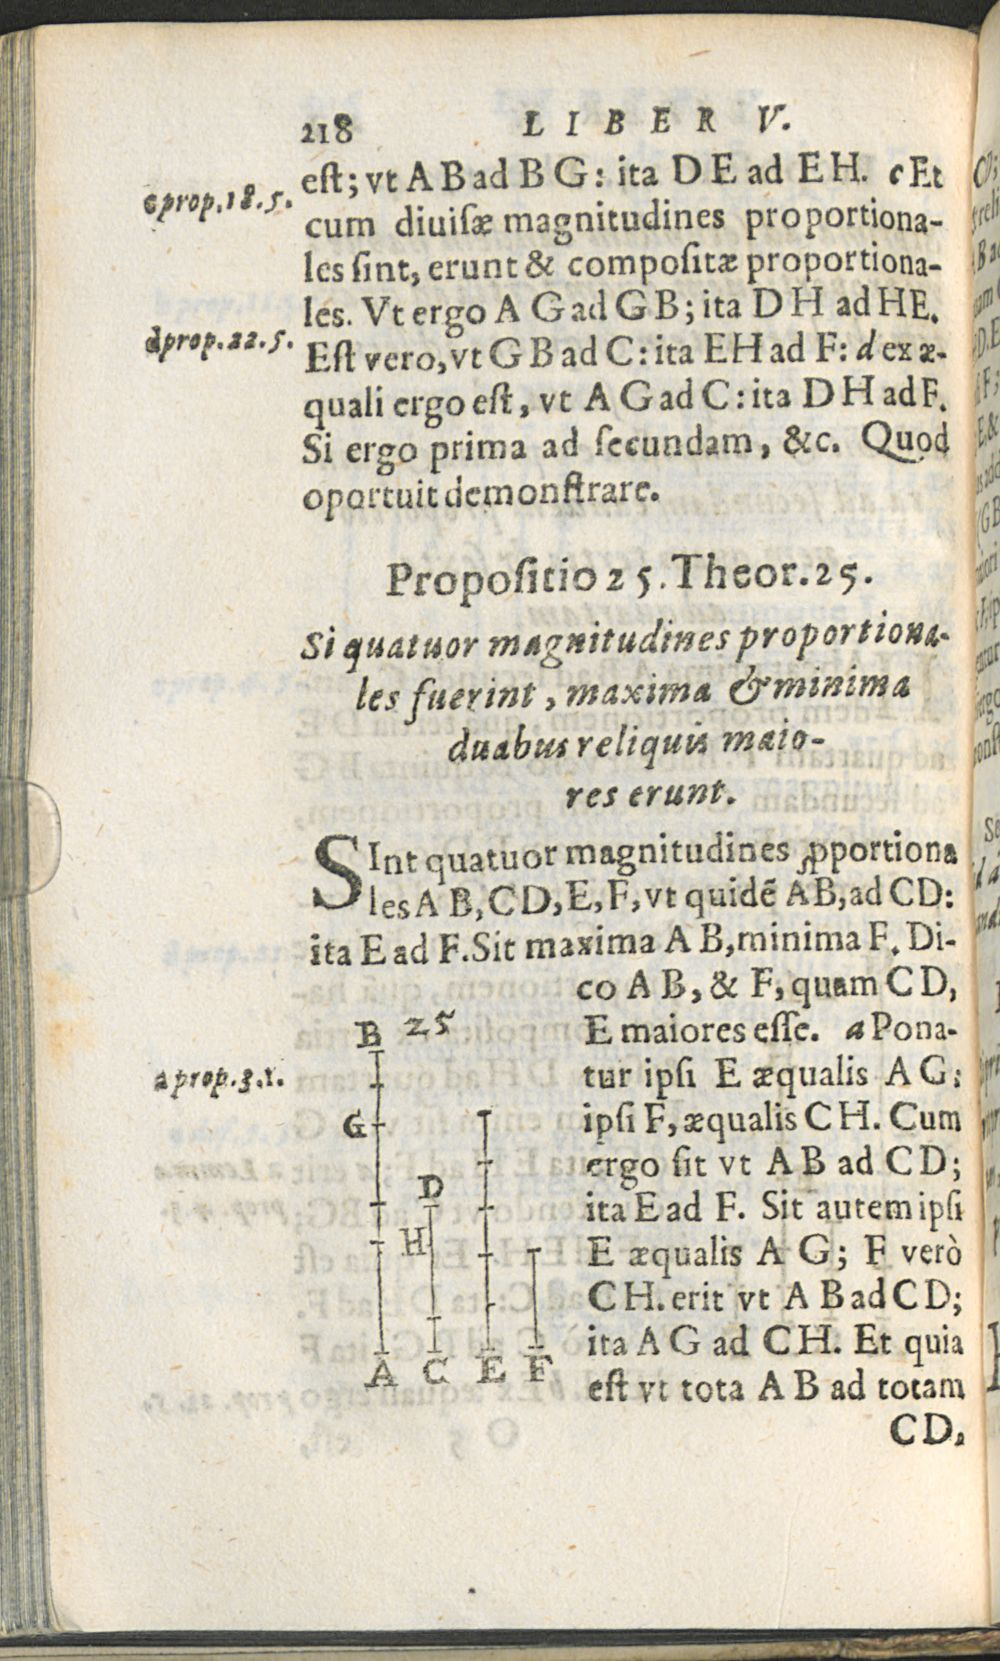 218 LIBER V.
est; vt A B ad B G: ita D E ad E H. c Et
c prop. 18. 5.
cum diuisæ magnitudines proportiona-
les sint, erunt & compositæ proportiona-
les. Vt ergo A G ad G B; ita D H ad HE.
d prop. 22. 5.
Est vero, vt G B ad C: ita EH ad F: d ex æ-
quali ergo est, vt A G ad C: ita D H ad F.
Si ergo prima ad secundam, &c. Quod
oportuit demonstrare.
Propositio 25. Theor. 25.
Si quatuor magnitudines proportiona-
les fuerint, maxima & minima
duabus reliquis maio-
res erunt.
SInt quatuor magnitudines ꝓportiona
les A B, CD, E, F, vt quidẽ AB, ad CD:
ita E ad F. Sit maxima A B, minima F. Di-
co A B, & F, quam C D,
E maiores esse. a Pona-
a prop. 3. 1.
tur ipsi E æqualis A G;
ipsi F, æqualis C H. Cum
ergo sit vt A B ad C D;
ita E ad F. Sit autem ipsi
E æqualis A G; F verò
C H. erit vt A B ad C D;
ita A G ad C H. Et quia
est vt tota A B ad totam
CD,
B 25
G
D
H
A C E F